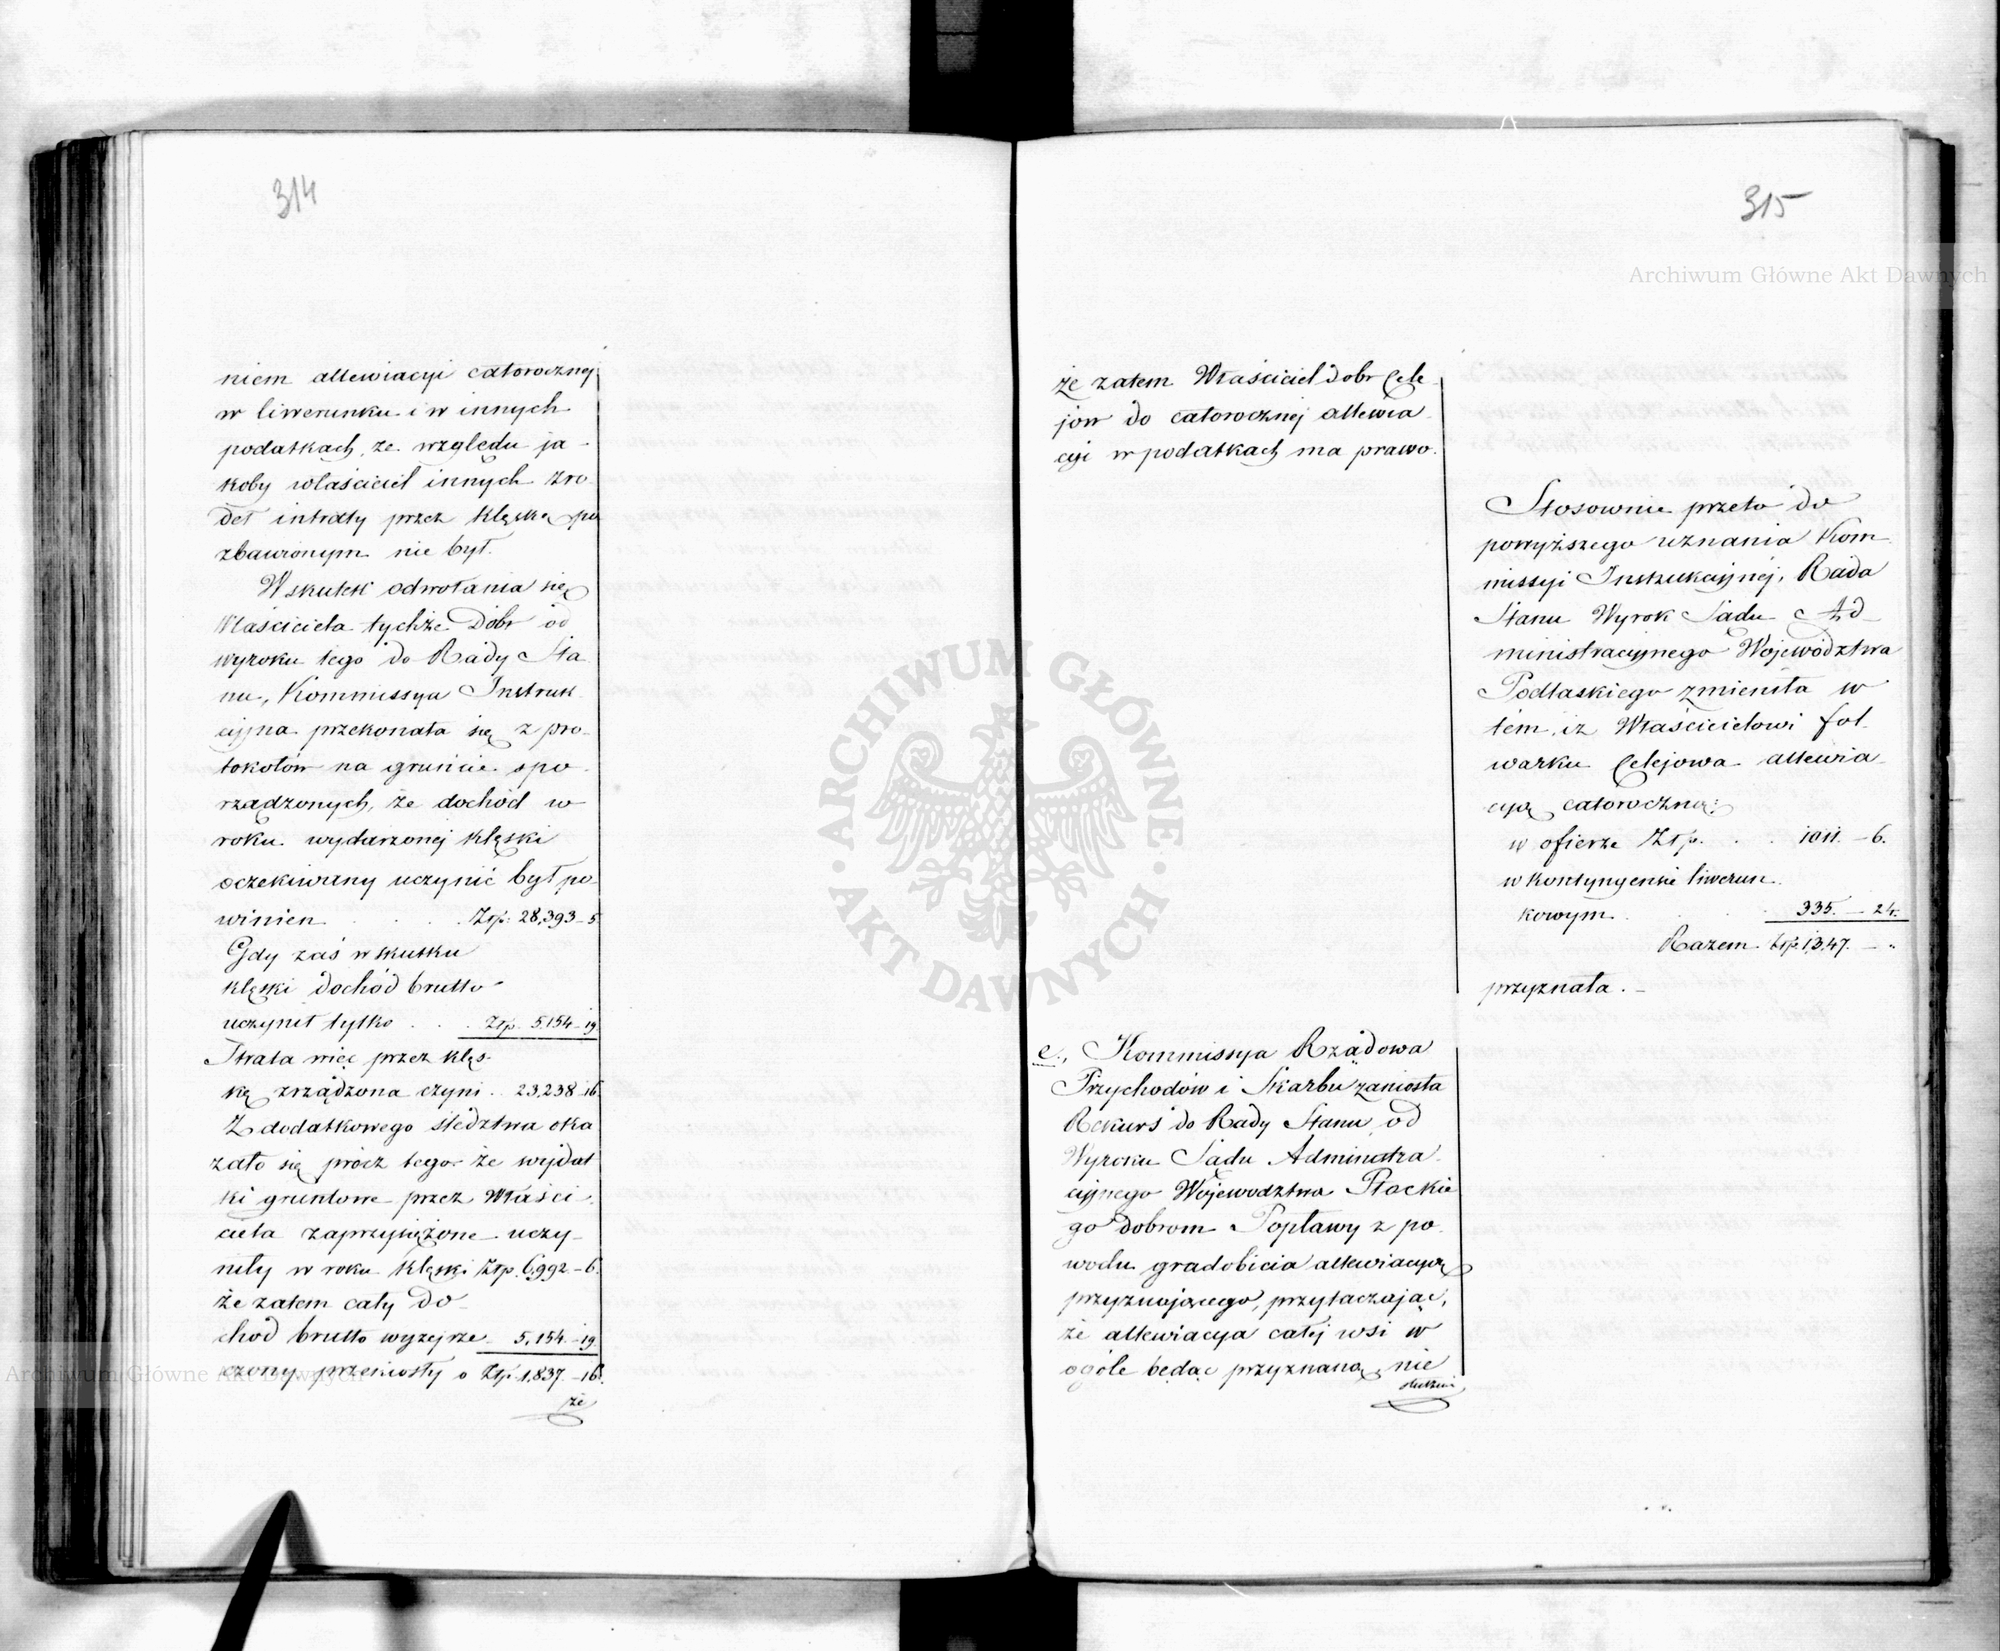 314
niem allewiacyi całorocznej
w liwerunku i w innych
podatkach, ze względu ja-
koby właściciel innych źro-
deł intraty przez klęskę po
zbawionym nie był.
Wskutek odwołania się
Właściciela tychże Dóbr od
wyroku tego do Rady Sta
nu, Kommissya Instruk-
cyjna przekonała się z pro-
tokołów na gruncie spo-
rządzonych, że dochód w
roku wydarzonej klęski
oczekiwany uczynić był po-
winien . . . Złp: 28,393-5
Gdy zaś w skutku
klęski dochód brutto
uczynił tylko . . . Złp. 5,154-19
Strata więc przez klęs-
kę zrządzona czyni . . 23,238-16.
Z dodatkowego śledztwa oka
zało się prócz tego że wydat
ki gruntowe przez Właści-
ciela zaprzysiężone uczy-
niły w roku klęski Złp. 6,992-6.
że zatem cały do-
chód brutto wyżej rze- 5,154-19
czony przeniosły o Złp. 1,837.-16.
że
315
że zatem Właściciel dobr Cele-
jow do całorocznej allewia-
cyi w podatkach ma prawo.
Stosownie przeto do
powyższego uznania Kom-
missyi Instrukcyjnej, Rada
Stanu Wyrok Sądu Ad-
ministracyjnego Województwa
Podlaskiego zmieniła w
tem, iż Właścicielowi fol-
warku Celejowa allewia-
cyą całoroczną:
w ofierze Złp. . . 1011.-6.
w Kontyngensie liwerun-
kowym . . . 335.-24.
Razem złp. 1347.-"
przyznała.-
e., Kommissya Rządowa
Przychodów i Skarbu zaniosła
Rekurs do Rady Stanu, od
Wyroku Sądu Administra-
cyjnego Województwa Płockie
go dobrom Popławy z po-
wodu gradobicia allewiacyą
przyznającego, przytaczając,
że allewiacya całej wsi w
ogóle będąc przyznaną, nie
Archiwum Główne Akt Dawnych
Archiwum Główne Akt Dawnych
ARCHIWUM GŁÓWNE AKT DAWNYCH